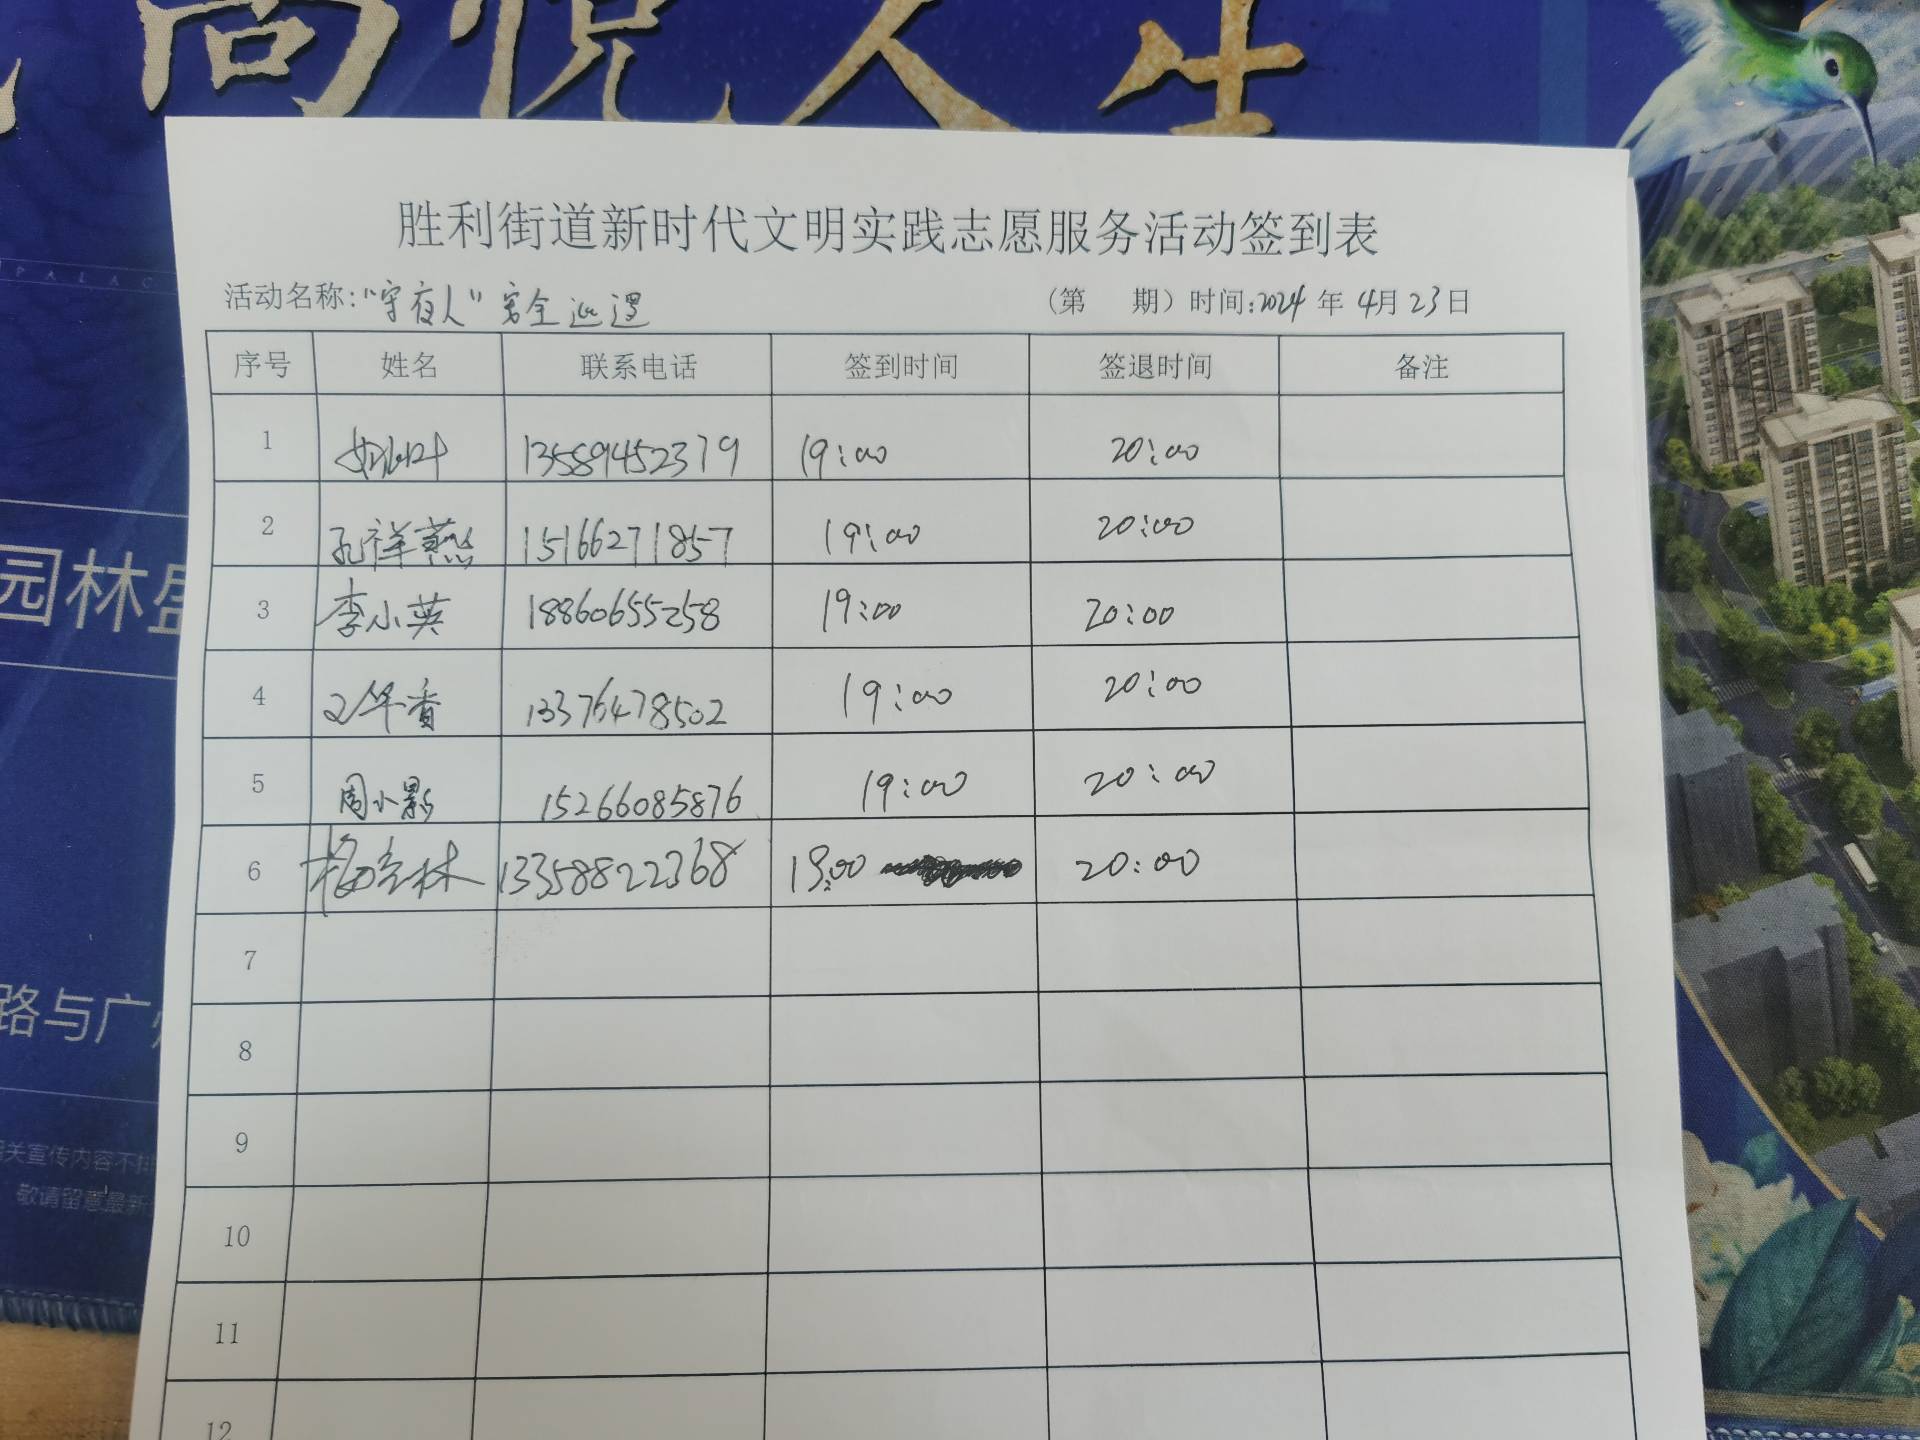 尚悦人生
PALAC
胜利街道新时代文明实践志愿服务活动签到表
活动名称:"守夜人"安全巡逻 (第 期) 时间:2024年4月23日
序号 姓名 联系电话 签到时间 签退时间 备注
1 13589452379 19:00 20:00
2 孔祥燕 15166271857 19:00 20:00
3 李小英 18860655258 19:00 20:00
4 13376478502 19:00 20:00
5 周小影 15266085876 19:00 20:00
6 林 13358822368 19:00 20:00
7
8
9
10
11
12
园林盛
路与广
关宣传内容不排
敬请留意最新